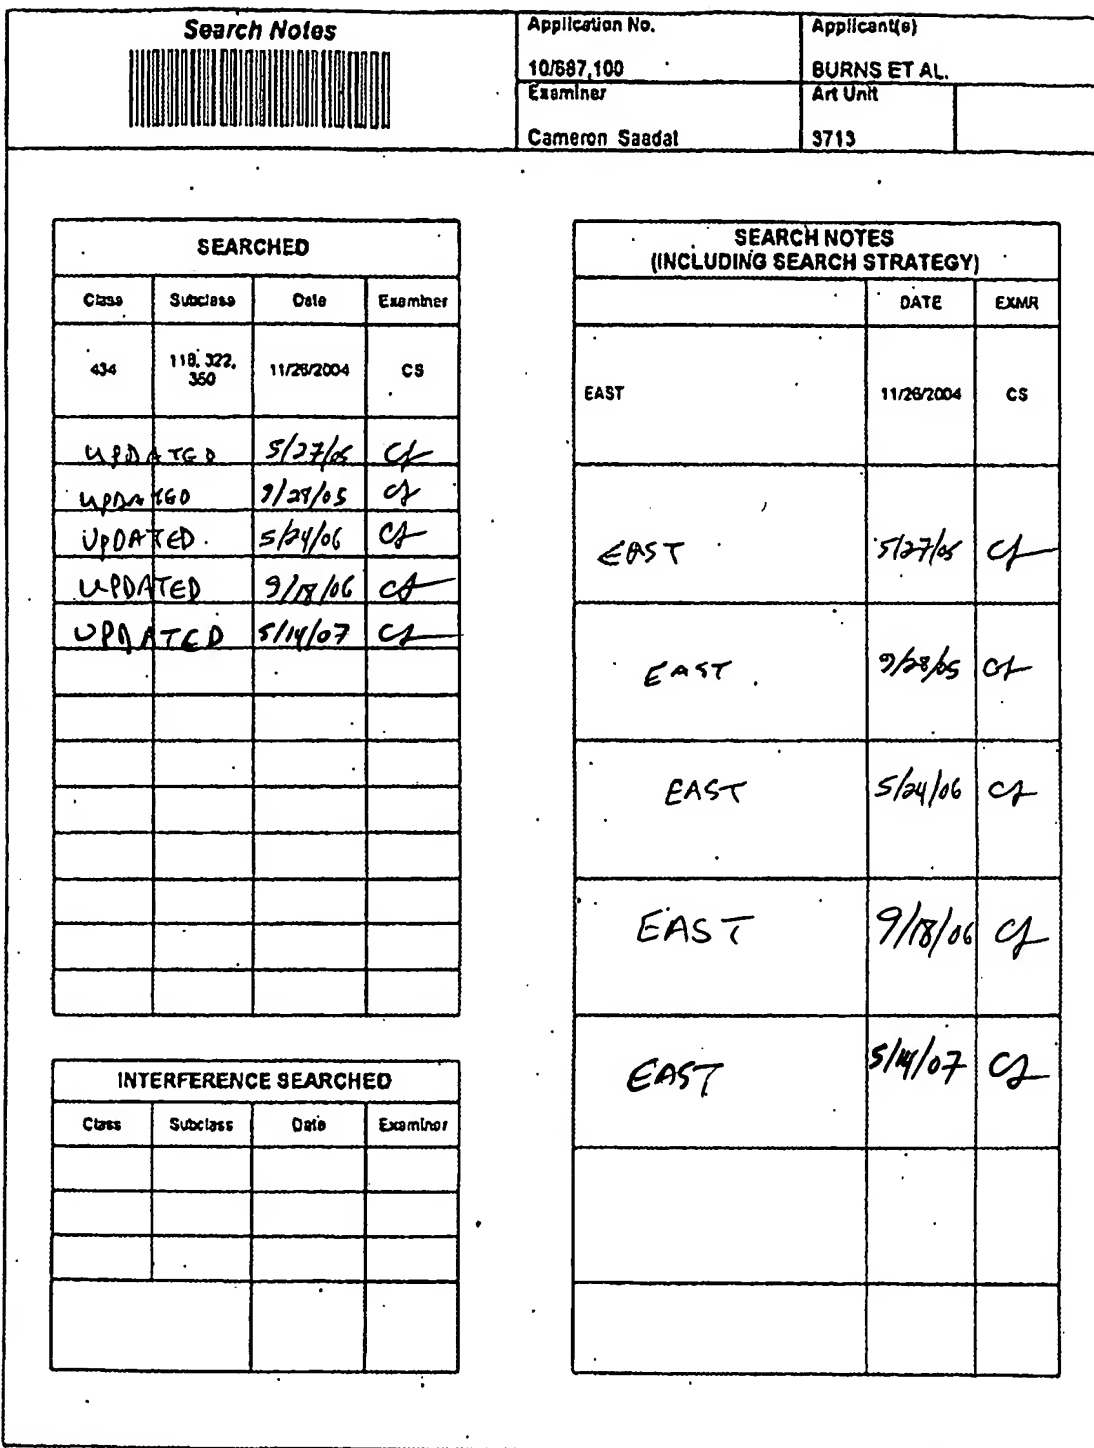 Search Notes
Application No.
Applicant(s)
10/687,100
BURNS ET AL.
Examiner
Art Unit
Cameron Saadat
3713
SEARCHED
Class Subclass Date Examiner
434 118, 322, 350 11/26/2004 CS
UPDATED 5/27/05 CS
UPDATED 9/28/05 CS
UPDATED 5/24/06 CS
UPDATED 9/18/06 CS
UPDATED 5/14/07 CS
INTERFERENCE SEARCHED
Class Subclass Date Examiner
SEARCH NOTES
(INCLUDING SEARCH STRATEGY)
DATE EXMR
EAST 11/26/2004 CS
EAST 5/27/05 CS
EAST 9/28/05 CS
EAST 5/24/06 CS
EAST 9/18/06 CS
EAST 5/14/07 CS